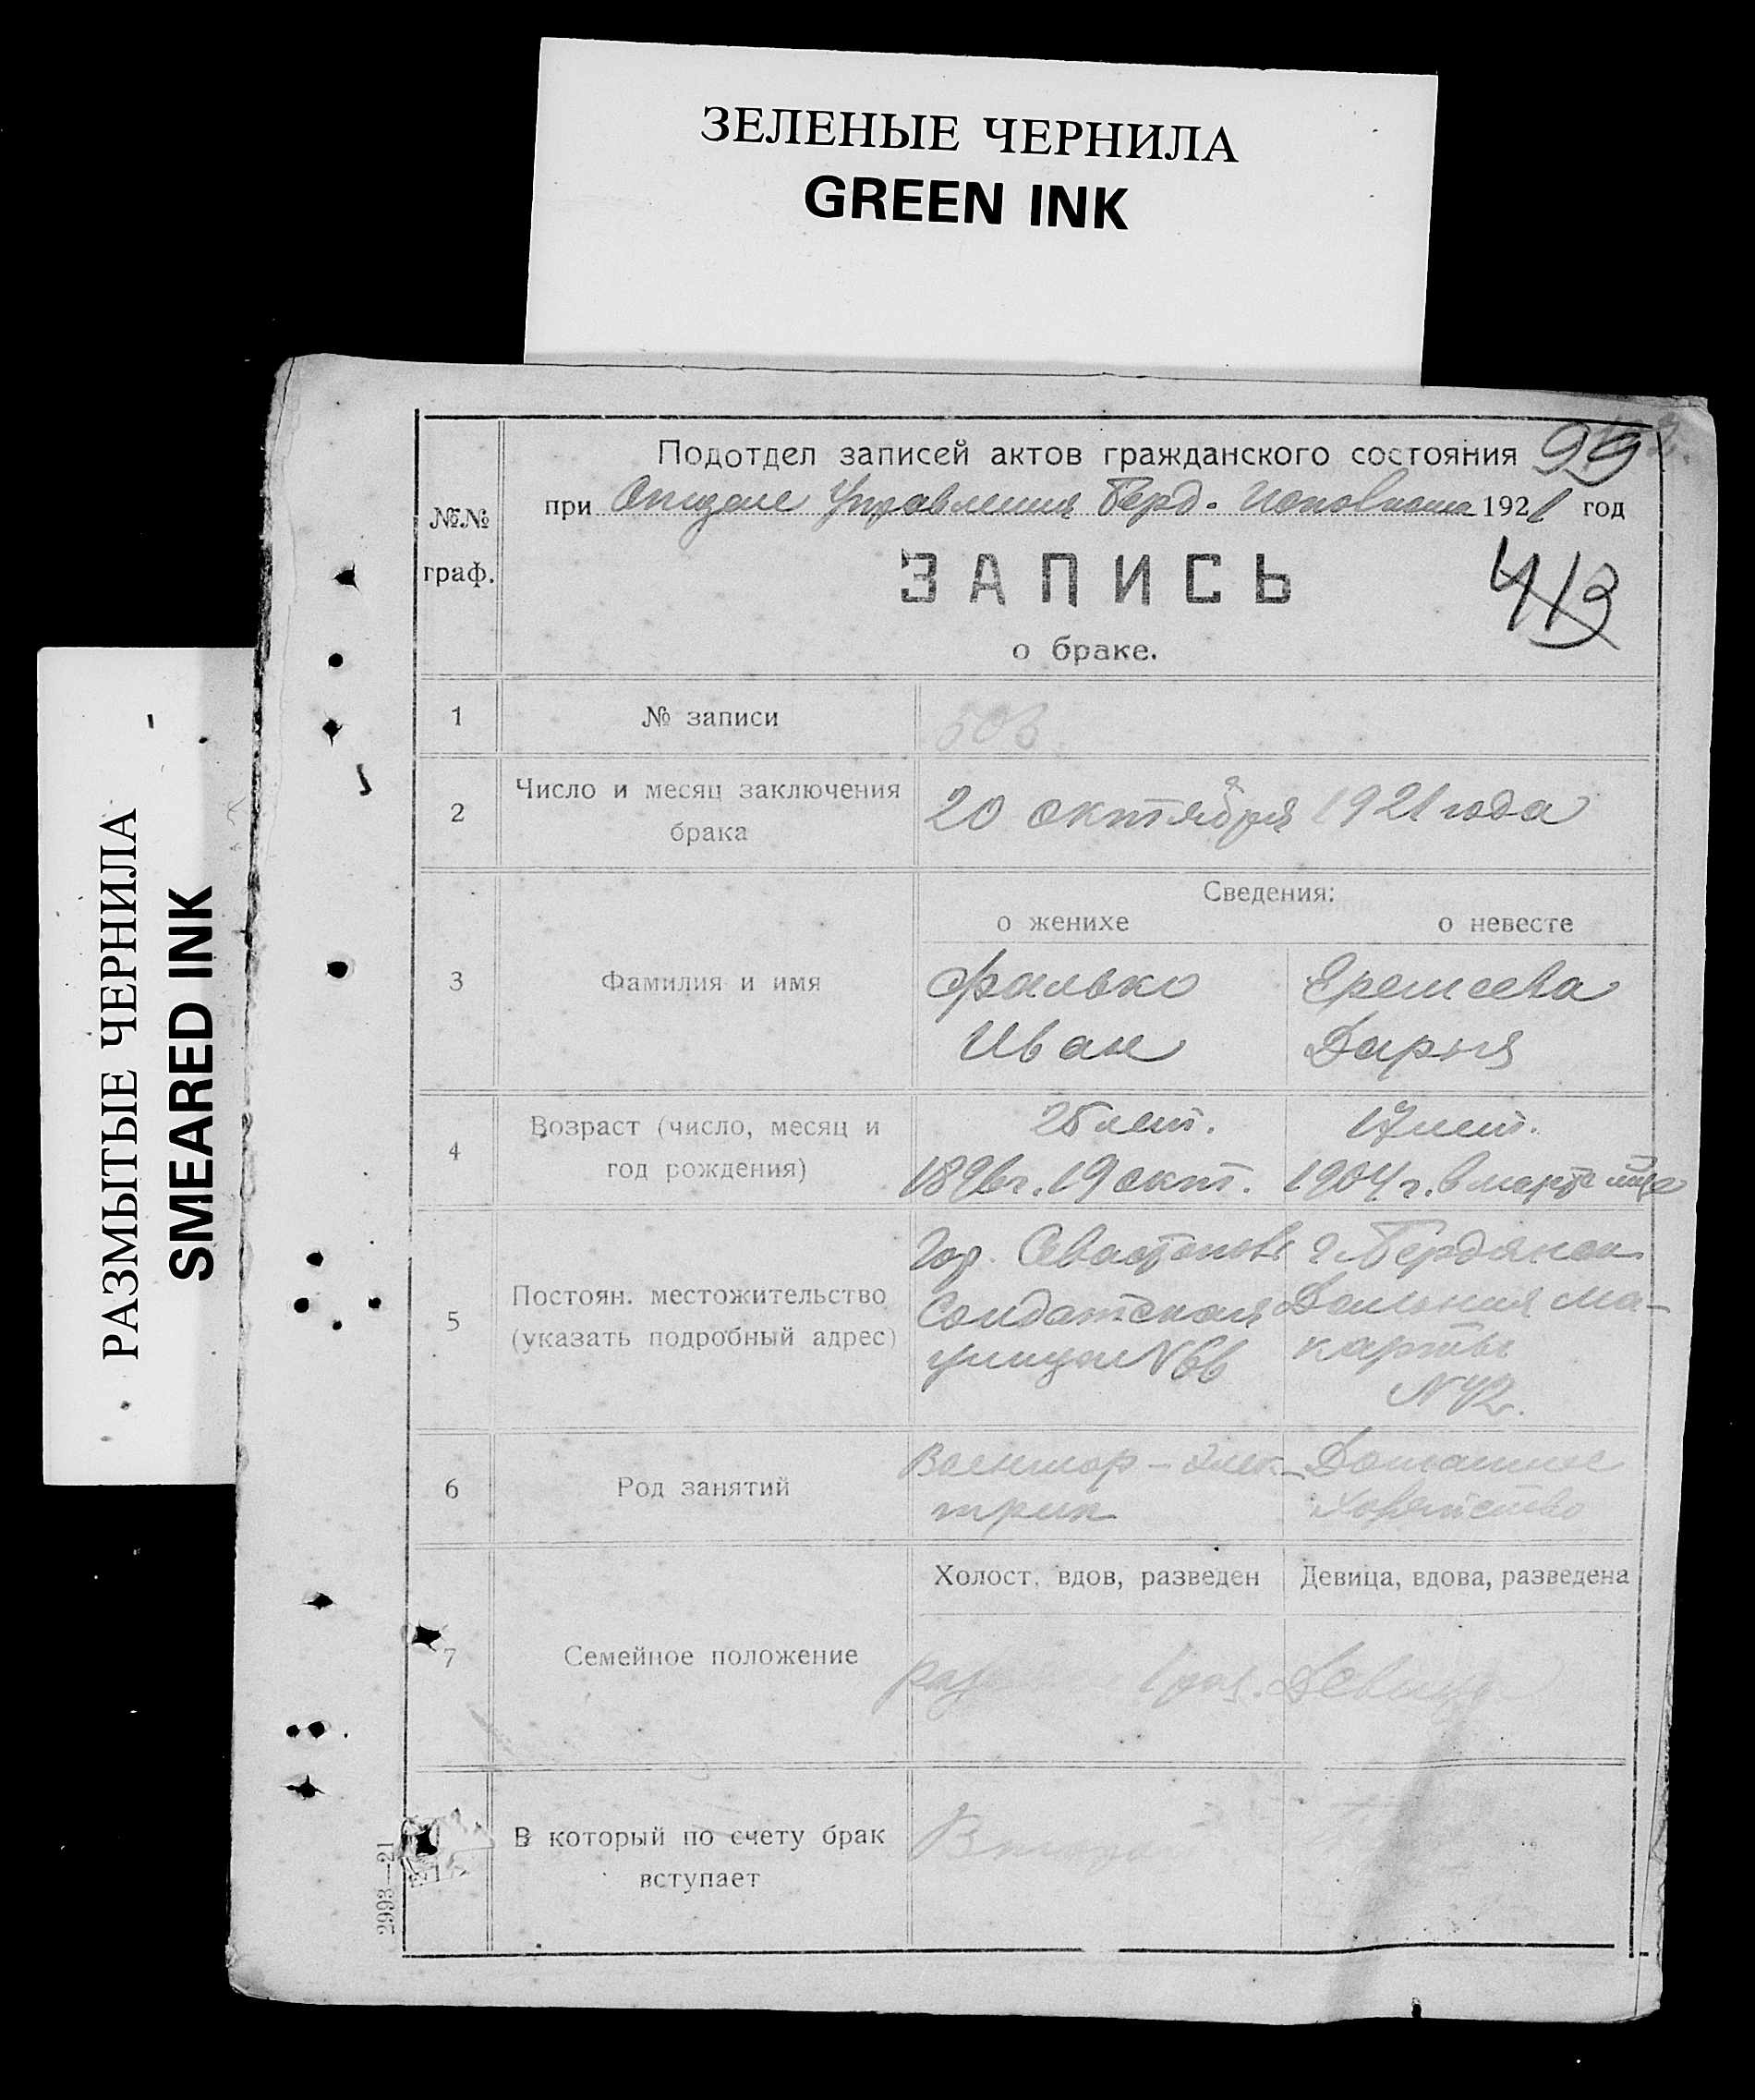 ЗЕЛЕНЫЕ ЧЕРНИЛА
GREEN INK
РАЗМЫТЫЕ ЧЕРНИЛА
SMEARED INK
Подотдел записей актов гражданского состояния 99
при Отделе Управления Берд. Исполкома 1921 год
№№
граф.
ЗАПИСЬ
413
о браке.
1 № записи
2 Число и месяц заключения
брака
20 октября 1921 года
Сведения:
о женихе о невесте
3 Фамилия и имя
Фалько Еремеева
Иван Дарья
4 Возраст (число, месяц и
год рождения)
25 лет. 17 лет.
1896 г. 19 окт. 1904 г. в марте м-це
5 Постоян. местожительство
(указать подробный адрес)
Гор. Севастополь г. Бердянск
Солдатская Дальния Ма-
улица № 66 карты
№ 42.
6 Род занятий
Военмор-элек- Домашнее
трик хозяйство
Холост, вдов, разведен Девица, вдова, разведена
7 Семейное положение
Девица
В который по счету брак
вступает
2993—21